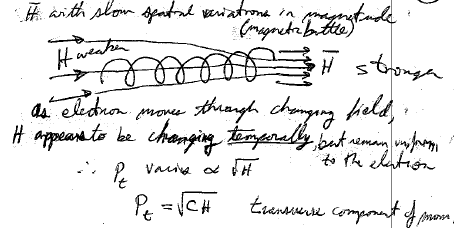 H̅ with slow spatial variations in magnetude
(magnetic bottle)
H weaker
H̅ stronger
as electron moves through changing field,
H appears to be changing temporally, but remain uniform
to the electron
∴ P_t varies ∝ √H
P_t = √CH transverse component of mom.